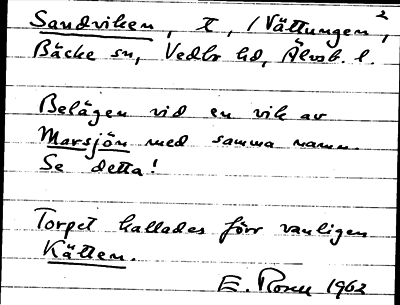 Sandviken, t, /Vättungen²,
Bäcke sn, Vedbo hd, Älvsb. l.
Belägen vid en vik av
Marsjön med samma namn.
Se detta!
Torpet kallades förr vanligen
Kätten.
E. 1962